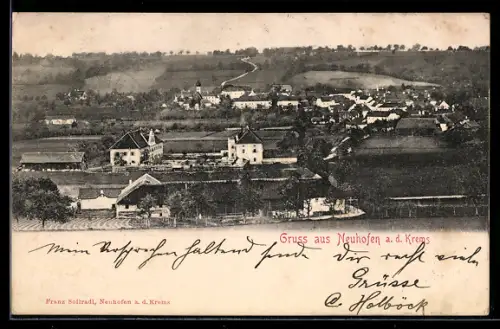 Gruss aus Neuhofen a. d. Krems
Mein Versprechen haltend sende Dir recht viele
Grüsse
C. Holböck
Franz Seitradl, Neuhofen a. d. Krems